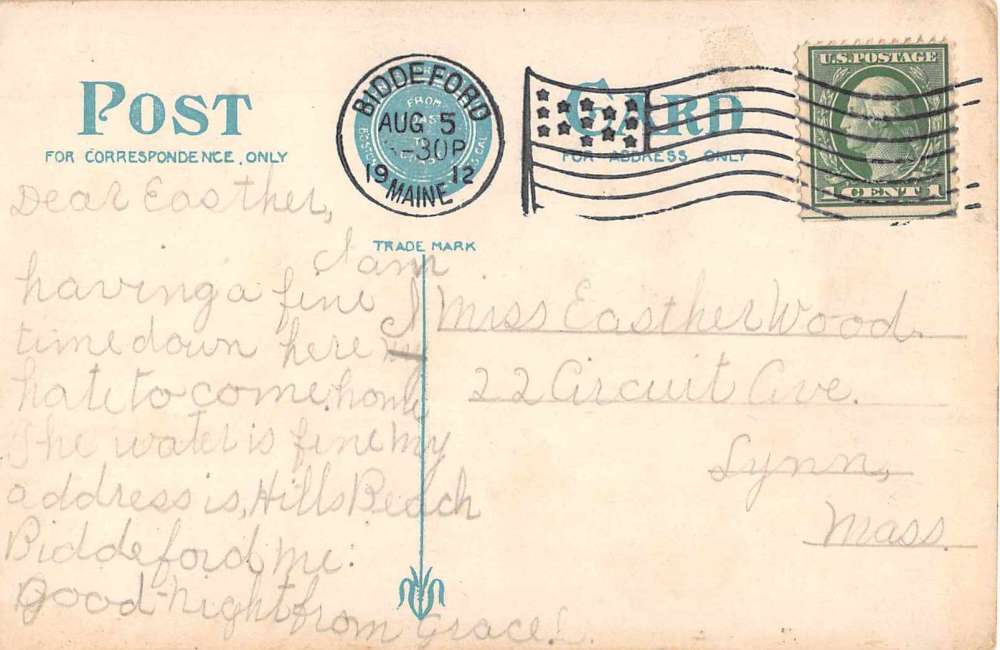 POST CARD
FOR CORRESPONDENCE ONLY
FOR ADDRESS ONLY
BIDDEFORD
AUG 5
-30P
19 12
MAINE
U.S. POSTAGE
1 CENT 1
TRADE MARK
Dear Easther,
I am
having a fine
time down here I
hate to come home
The water is fine my
address is, Hills Beach
Biddeford Me:
Good-night from Grace.
Miss Easther Wood.
22 Circuit Ave.
Lynn,
Mass.